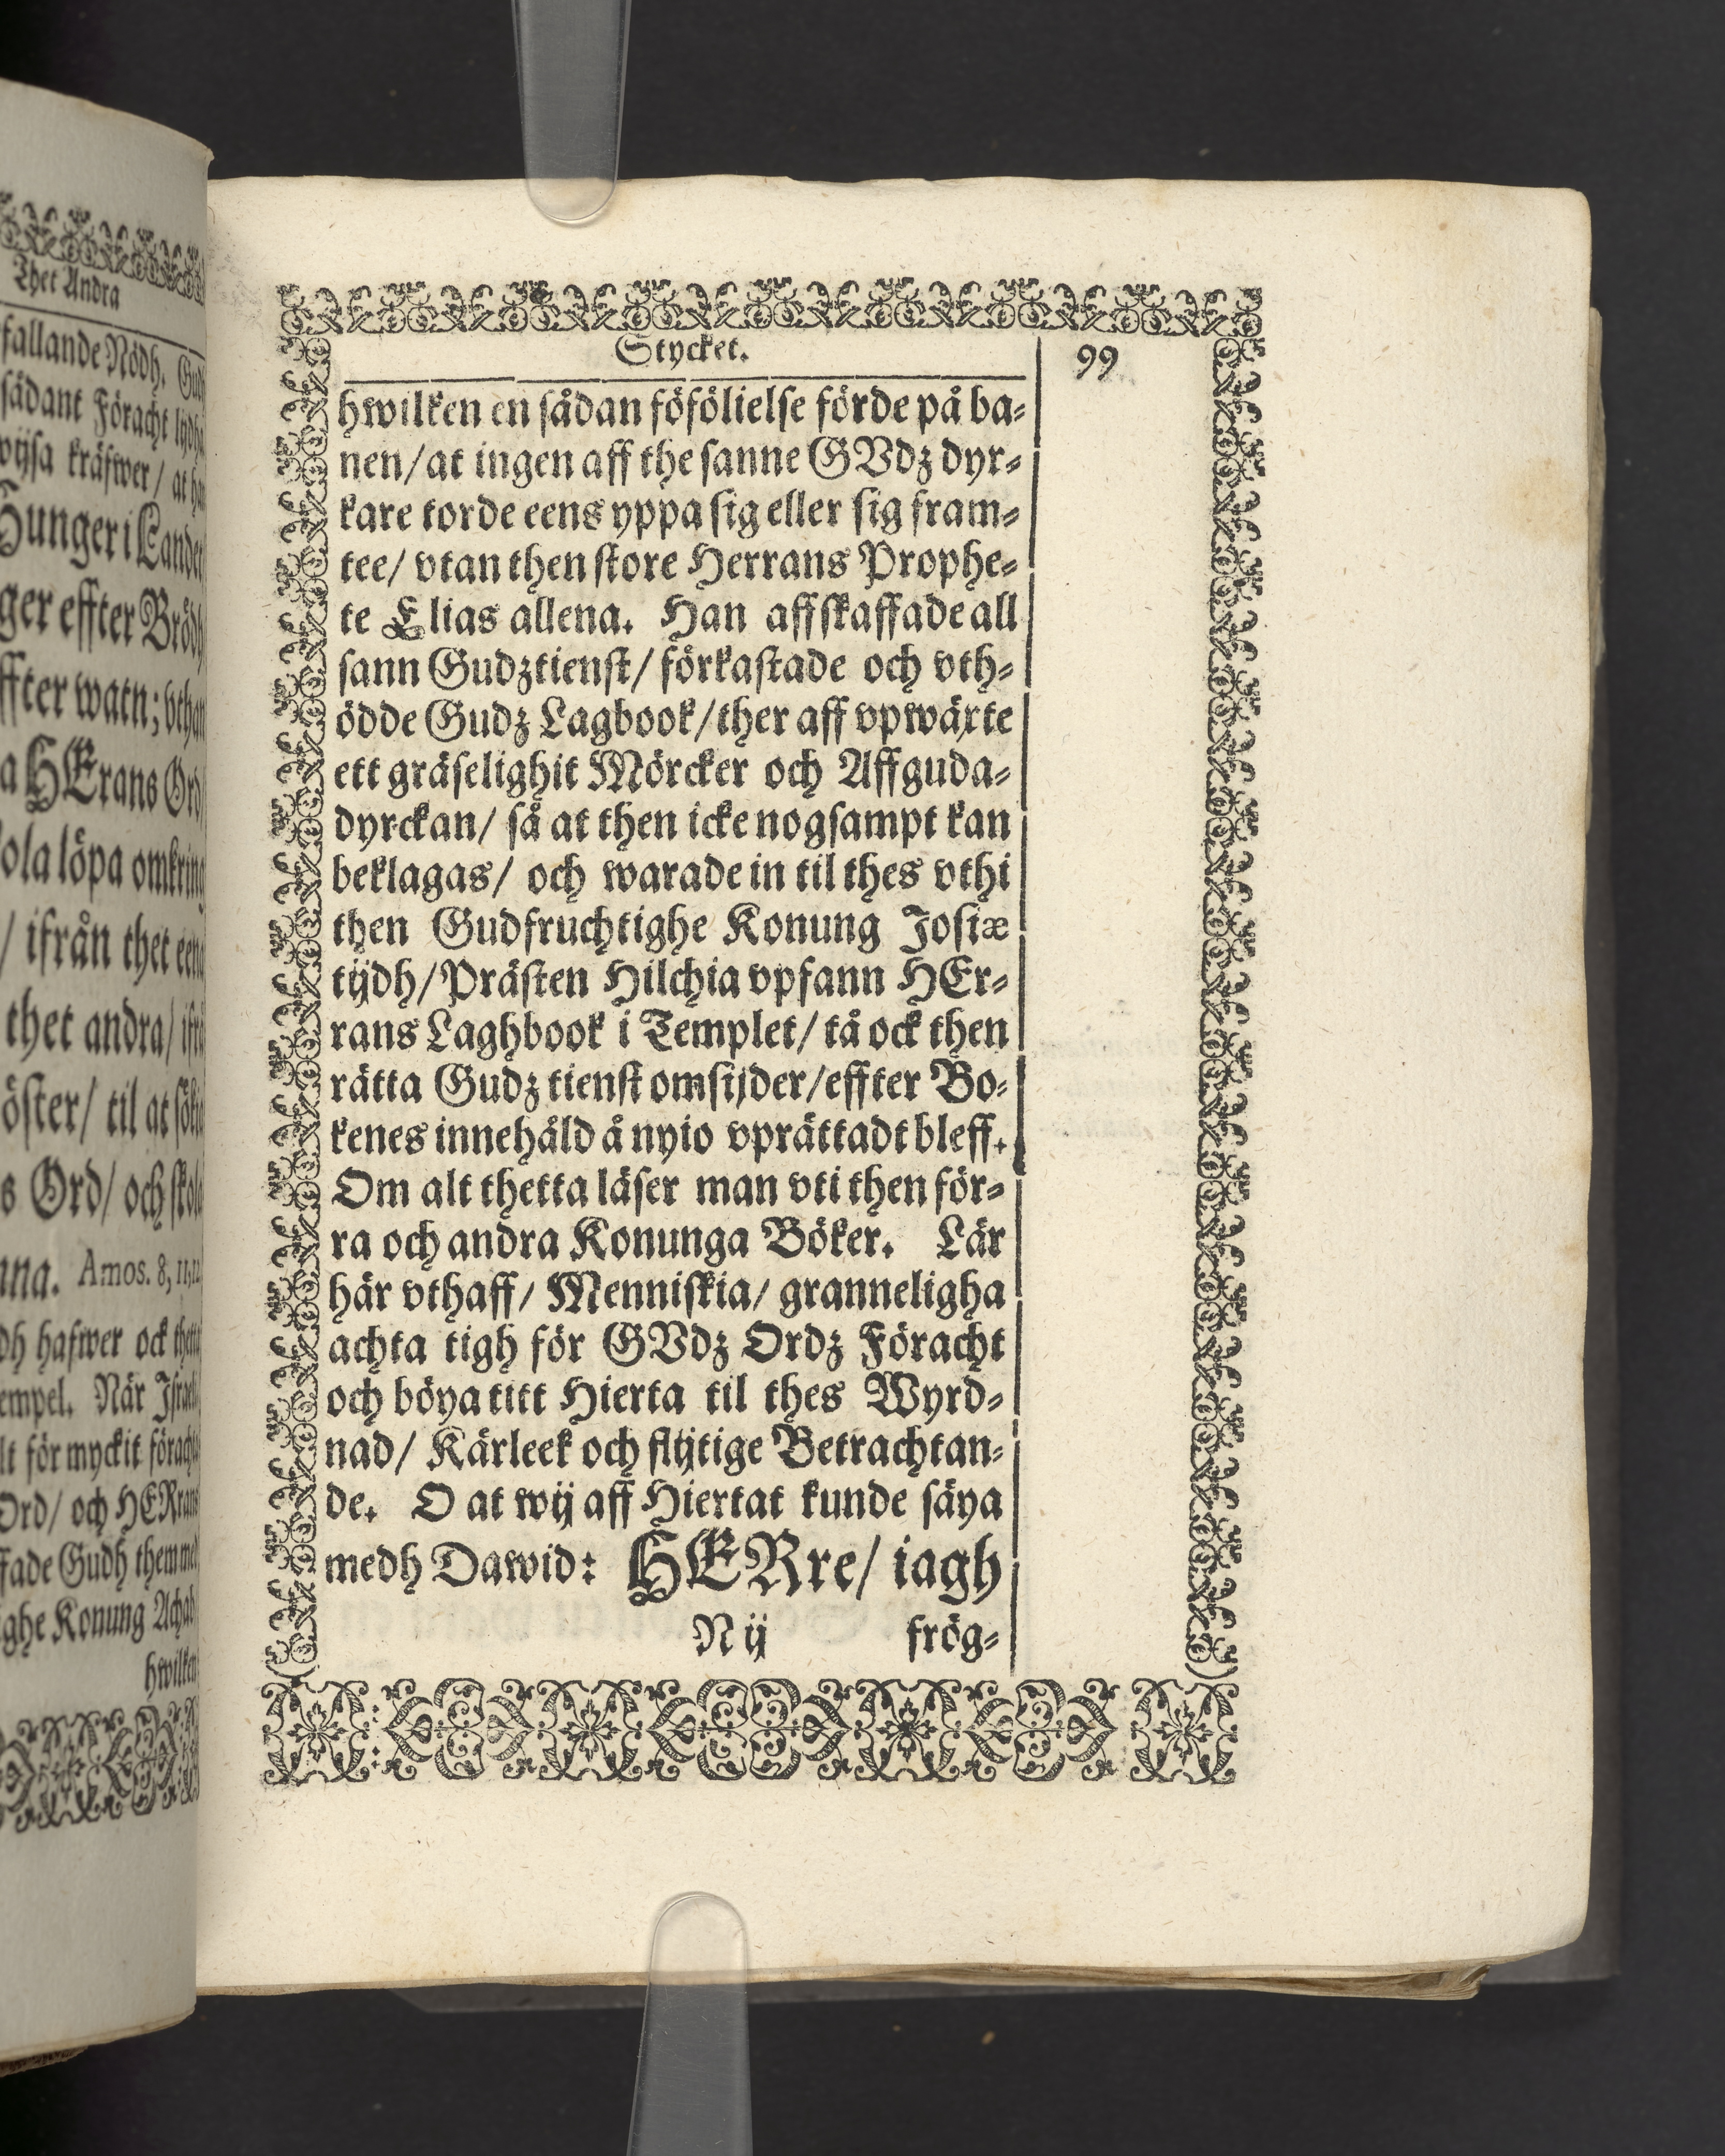 Thet Andra
fallande Nödh.
sådant Föracht
wijsa kräfwer / at
Hunger i Landet
ger effter Brödh
ffter watn; vthan
a HErans Ord
ola löpa omkring
/ ifrån thet eena
thet andra /
öster / til at sökia
s Ord / och skola
nna. Amos. 8, 11, 12
dh hafwer ock
empel. När
lt för myckit
Ord / och HERrans
fade Gudh them
ghe Konung Achab
hwilken
Stycket. 99
hwilken en sådan föfölielse förde på ba-
nen / at ingen aff the sanne GVdz dyr-
kare torde eens yppa sig eller sig fram-
tee / vtan then store Herrans Prophe-
te Elias allena. Han affskaffade all
sann Gudztienst / förkastade och vth-
ödde Gudz Lagbook / ther aff vpwäxte
ett gräselighit Mörcker och Affguda-
dyrckan / så at then icke nogsampt kan
beklagas / och warade in til thes vthi
then Gudfruchtighe Konung Josiæ
tijdh / Prästen Hilchia vpfann HEr-
rans Laghbook i Templet / tå ock then
rätta Gudz tienst omsijder / effter Bo-
kenes innehåld å nyio vprättadt bleff.
Om alt thetta läser man vti then för-
ra och andra Konunga Böker. Lär
här vthaff / Menniskia / granneligha
achta tigh för GVdz Ordz Föracht
och böya titt Hierta til thes Wyrd-
nad / Kärleek och flijtige Betrachtan-
de. O at wij aff Hiertat kunde säya
medh Dawid: HERre / iagh
N ij frög-